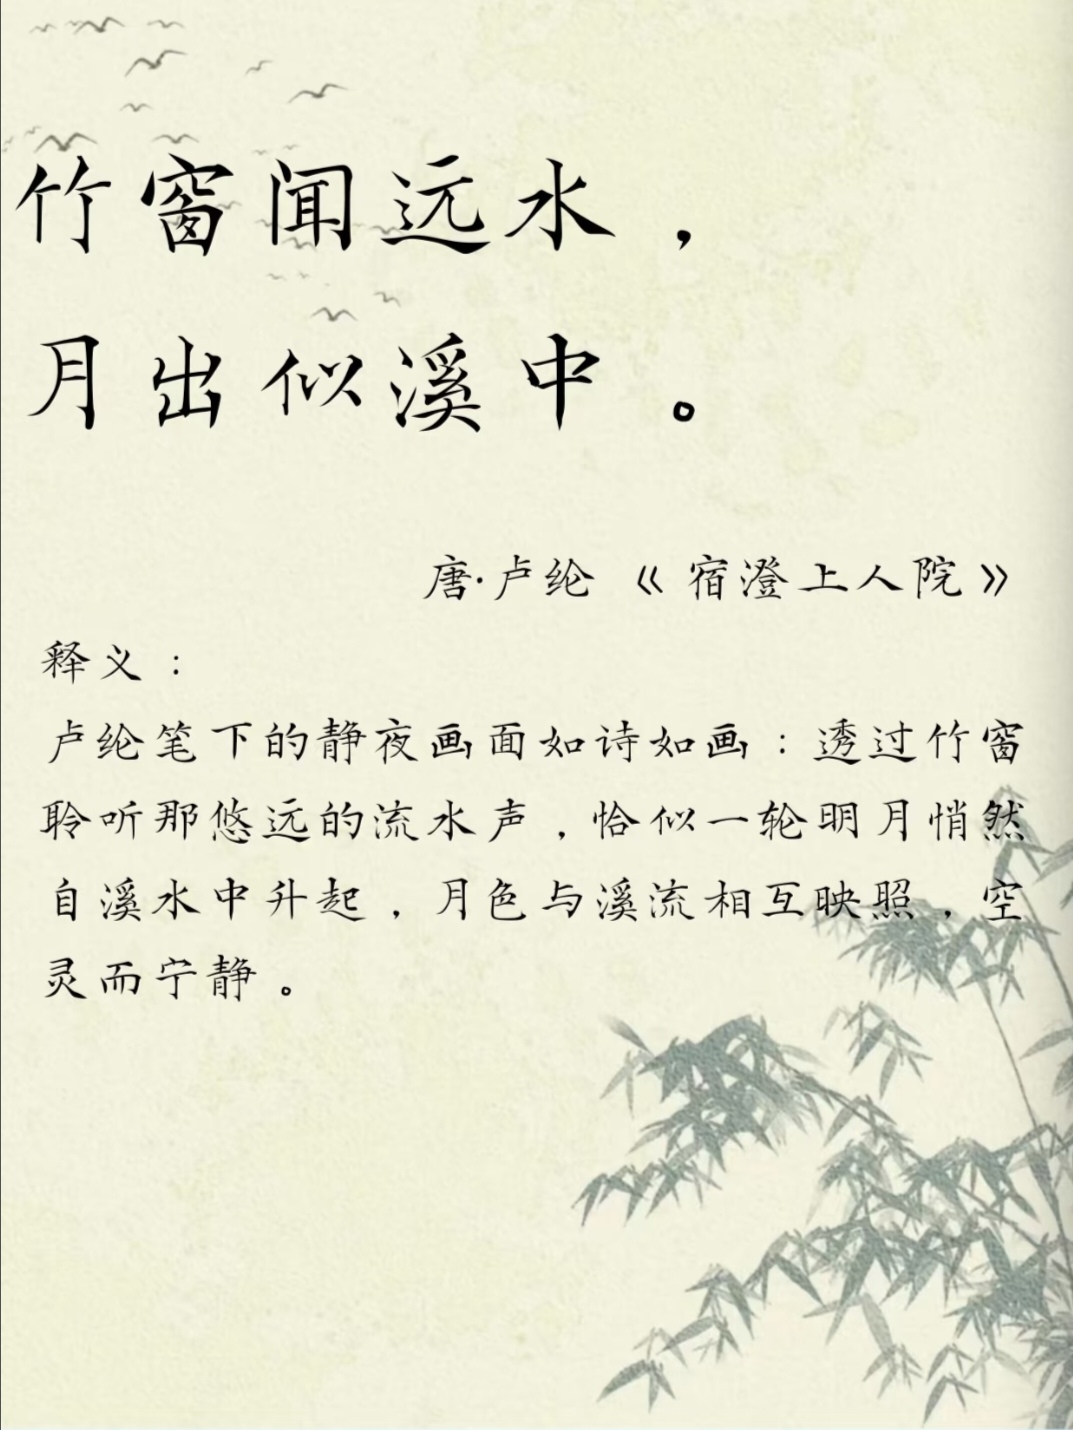 竹窗闻远水，
月出似溪中。
唐·卢纶《宿澄上人院》
释义：
卢纶笔下的静夜画面如诗如画：透过竹窗
聆听那悠远的流水声，恰似一轮明月悄然
自溪水中升起，月色与溪流相互映照，空
灵而宁静。